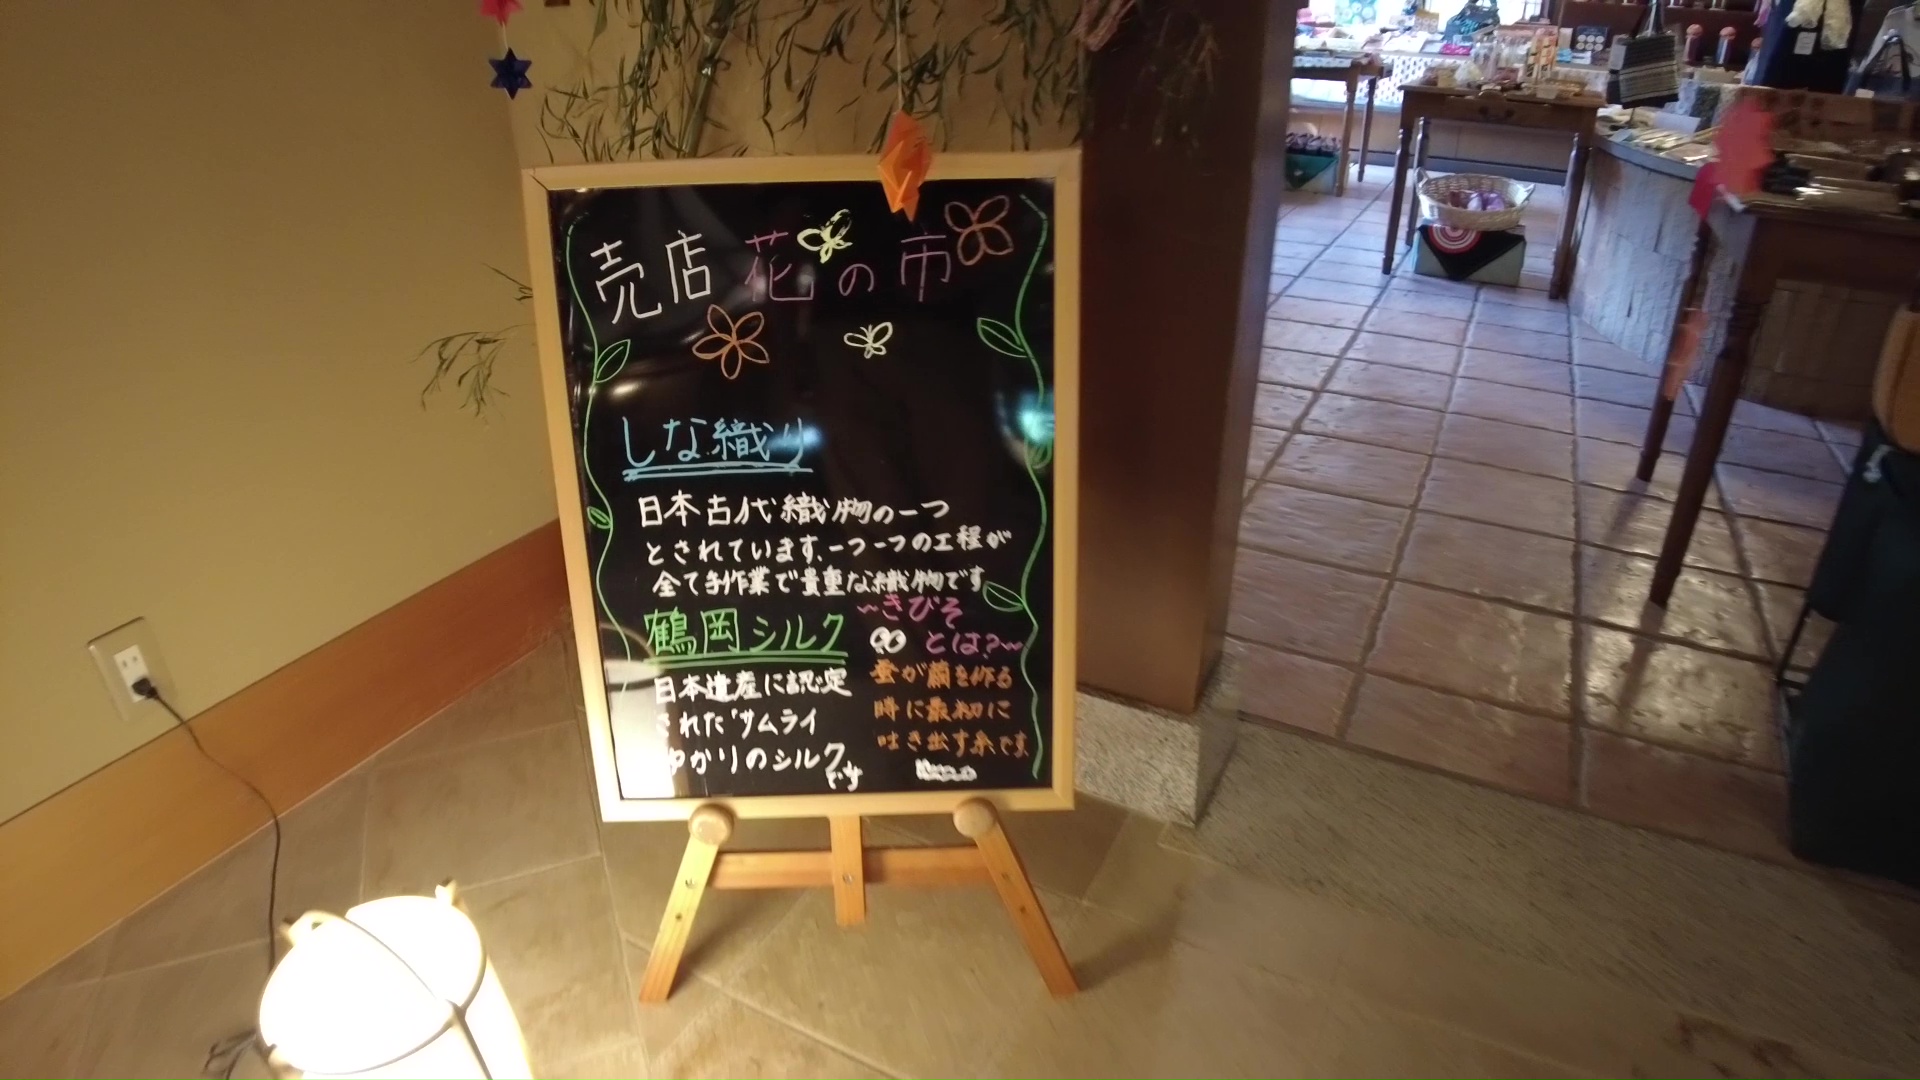 売店 花の市
しな織り
日本古代織物の一つ
とされています。一つ一つの工程が
全て手作業で貴重な織物です
鶴岡シルク
日本遺産に認定
された「サムライ
ゆかりのシルク
です
~きびそ
とは?~
蚕が繭を作る
時に最初に
吐き出す糸です